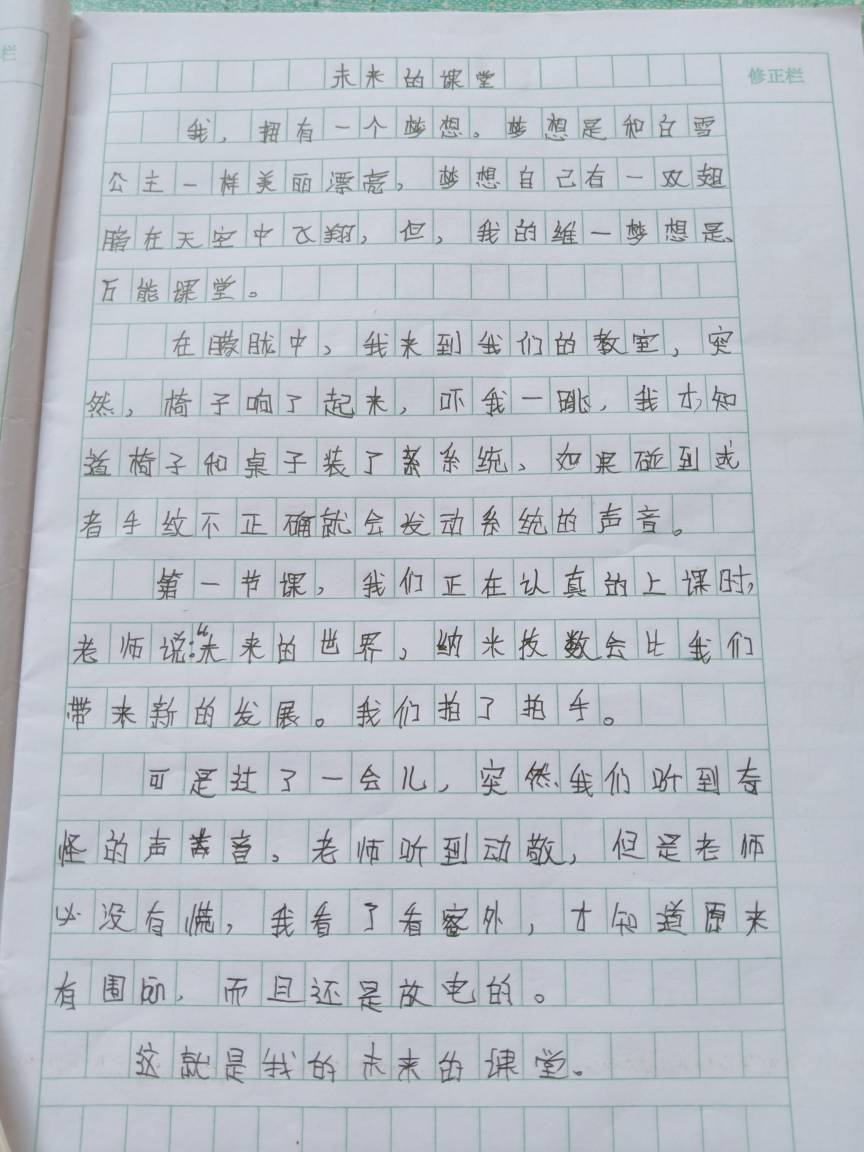 栏
修正栏
未来的课堂
我，拥有一个梦想。梦想是和白雪
公主一样美丽漂亮，梦想自己有一双翅
膀在天空中飞翔，但，我的维一梦想是、
万能课堂。
在朦胧中，我来到我们的教室，突
然，椅子响了起来，吓我一跳，我才知
道椅子和桌子装了系统、如果碰到或
者手纹不正确就会发动系统的声音。
第一节课，我们正在认真的上课时，
老师说：“未来的世界，纳米技数会比我们
带来新的发展。我们拍了拍手。
可是过了一会儿，突然、我们听到奇
怪的声音。老师听到动敬，但是老师
没有慌，我看了看窗外，才知道原来
有围，而且还是放电的。
这就是我的未来的课堂。